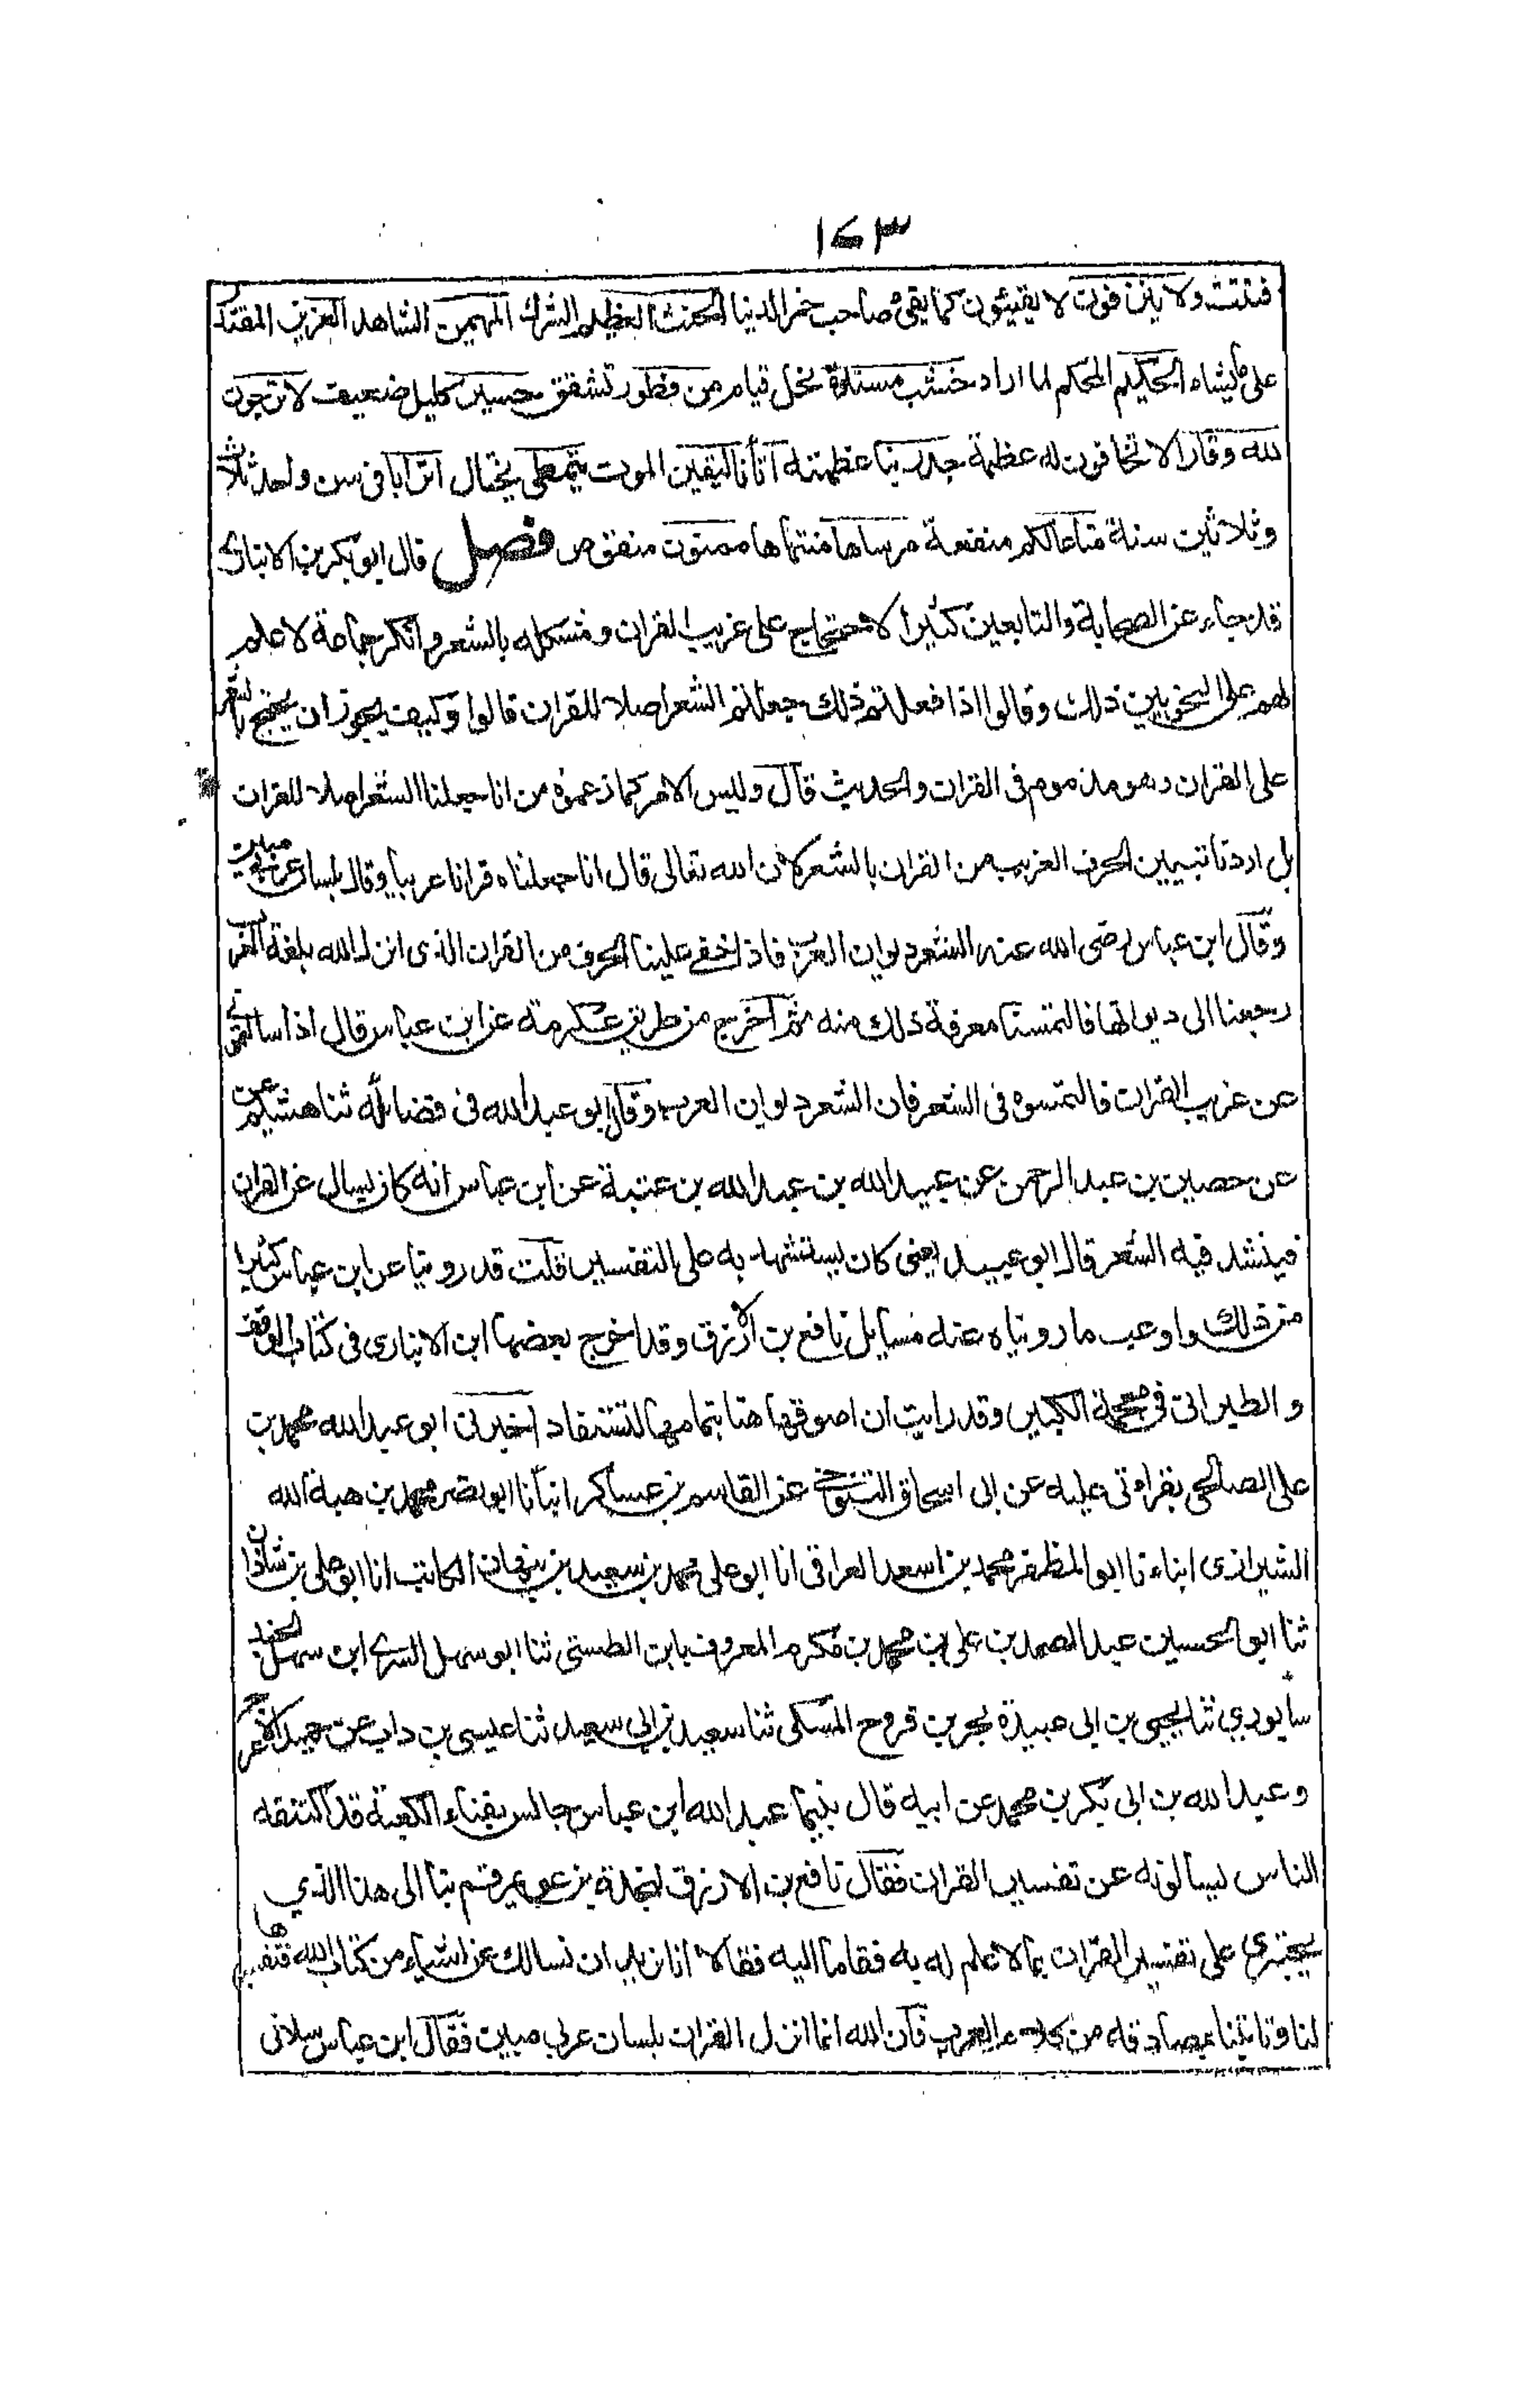 ١٤٣
فتنتت ولا ينزفون لا يقيئون كما يقئ صاحب خمر الدنيا الحنث العظيم الشرك المهيمن الشاهد العزيز المقتدر
على ما يشاء الحكيم المحكم لما اراد خشب مسندة نخل قيام من فطور تشقق حسير كليل ضعيف لا ترجون
لله وقارا لا تخافون له عظمة جد ربنا عظمته اتانا اليقين الموت يتمطى يختال اترابا فى سن واحد ثلاث
وثلاثين سنة متاعا لكم منفعة مرساها منتهاها ممنون منقوص فصل قال ابو بكر بن الانبارى
قد جاء عن الصحابة والتابعين كثيرا الاحتجاج على غريب القران ومشكله بالشعر وانكر جماعة لا علم
لهم على النحويين ذلك وقالوا اذا فعلتم ذلك جعلتم الشعر اصلا للقران قالوا وكيف يجوز ان يحتج بالشعر
على القران وهو مذموم فى القران والحديث قال وليس الامر كما زعموه من انا جعلنا الشعر اصلا للقران
بل اردنا تبيين الحرف الغريب من القران بالشعر لان الله تعالى قال انا جعلناه قرانا عربيا وقال بلسان عربى مبين
وقال ابن عباس رضى الله عنه الشعر ديوان العرب فاذا خفى علينا الحرف من القران الذى انزله الله بلغة العرب
رجعنا الى ديوانها فالتمسنا معرفة ذلك منه ثم اخرج من طريق عكرمة عن ابن عباس قال اذا سالتمونى
عن غريب القران فالتمسوه فى الشعر فان الشعر ديوان العرب وقال ابو عبد الله فى فضائله ثنا هشيم عن
عن حصين بن عبد الرحمن عن عبيد الله بن عبد الله بن عتبة عن ابن عباس انه كان يسال عن القران
فينشد فيه الشعر قال ابو عبيد يعنى كان يستشهد به على التفسير قلت قد روينا عن ابن عباس كثيرا
من ذلك واوعب ما رويناه عنه مسايل نافع بن الازرق وقد اخرج بعضها ابن الانبارى فى كتاب الوقف
والطبرانى فى معجمة الكبير وقد رايت ان اسوقها هنا بتمامها لتستفاد اخبرنى ابو عبد الله محمد بن
على الصالحى بقراءتى عليه عن ابى اسحاق التنوخى عن القاسم بن عساكر انبأنا ابو نصر محمد بن هبة الله
الشيرازى انباءنا ابو المظفر محمد بن اسعد العراقى انا ابو على محمد بن سعيد بن نبهان الكاتب انا ابو على بن شاذان
ثنا ابو الحسين عبد الصمد بن على بن محمد بن مكرم المعروف بابن الطستى ثنا ابو سهل السرى ابن سهل الجند
سابورى ثنا يحيى بن ابى عبيدة بحر بن فروح المسكى ثنا سعيد بن ابى سعيد ثنا عيسى بن داب عن حميد الاعرج
وعبد الله بن ابى بكر بن محمد عن ابيه قال بينما عبد الله ابن عباس جالس بفناء الكعبة قد اكتنفه
الناس يسالونه عن تفسير القران فقال نافع بن الازرق لنجدة بن عويمر قم بنا الى هذا الذى
يجترى على تفسير القران بما لا علم له به فقاما اليه فقالا انا نريد ان نسالك عن اشياء من كتاب الله فتفسرها
لنا وتاتينا بمصادقه من كلام العرب فان الله انما انزل القران بلسان عربى مبين فقال ابن عباس سلانى